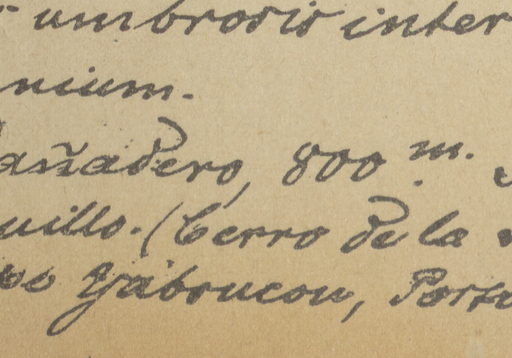 umbrosis inter
nium.
añadero, 800 m.
uillo. (Cerro de la
Yaboucou, Porto